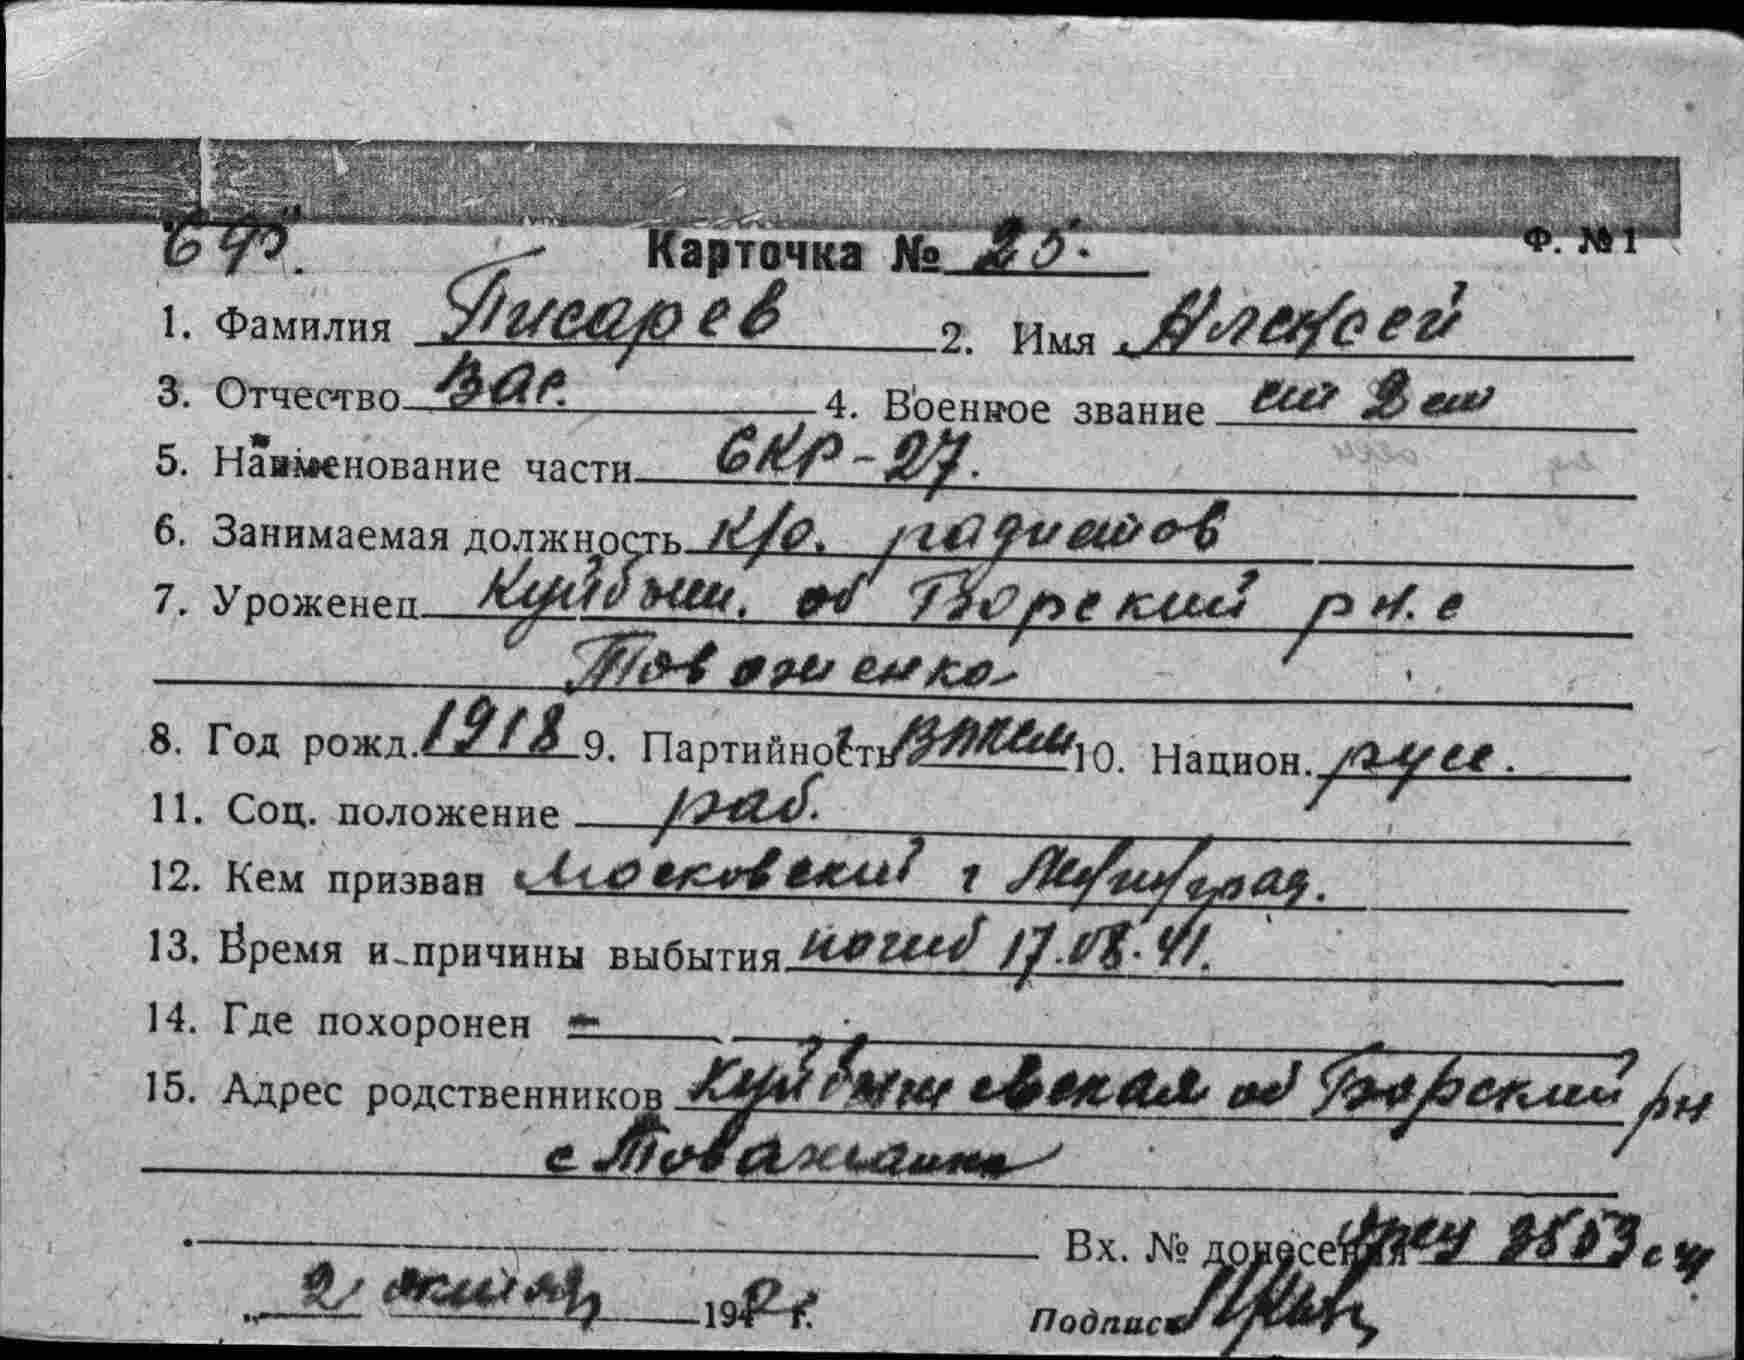 СФ.
Карточка № 25. Ф. №1
1. Фамилия Писарев 2. Имя Алексей
3. Отчество Вас. 4. Военное звание ст 2 ст
5. Наименование части СКР-27.
6. Занимаемая должность к/о. радистов
7. Уроженец Куйбыш. об Борский рн. с
Товоженко
8. Год рожд. 1918 9. Партийность ВЛКСМ 10. Национ. русс.
11. Соц. положение раб.
12. Кем призван Московский г Ленинград.
13. Время и причины выбытия погиб 17.08.41.
14. Где похоронен -
15. Адрес родственников Куйбышевская об Борский рн
с Товажанка
Вх. № донесения 9553 с 41
2 октября 194 г.
Подпись